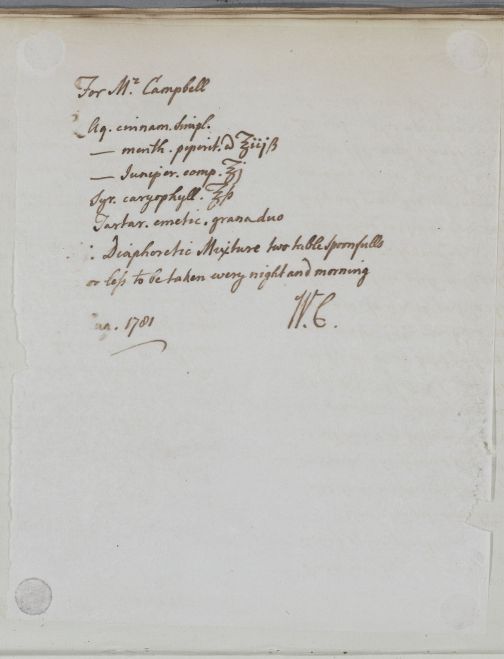 For Mr. Campbell
Aq. cinnam. simpl.
— menth. piperit. a ʒiijß
— Juniper. comp. ʒj
Syr. caryophyll. ʒß
Tartar. emetic. grana duo
: Diaphoretic Mixture two table spoonfulls
or less to be taken every night and morning
1781 W. C.